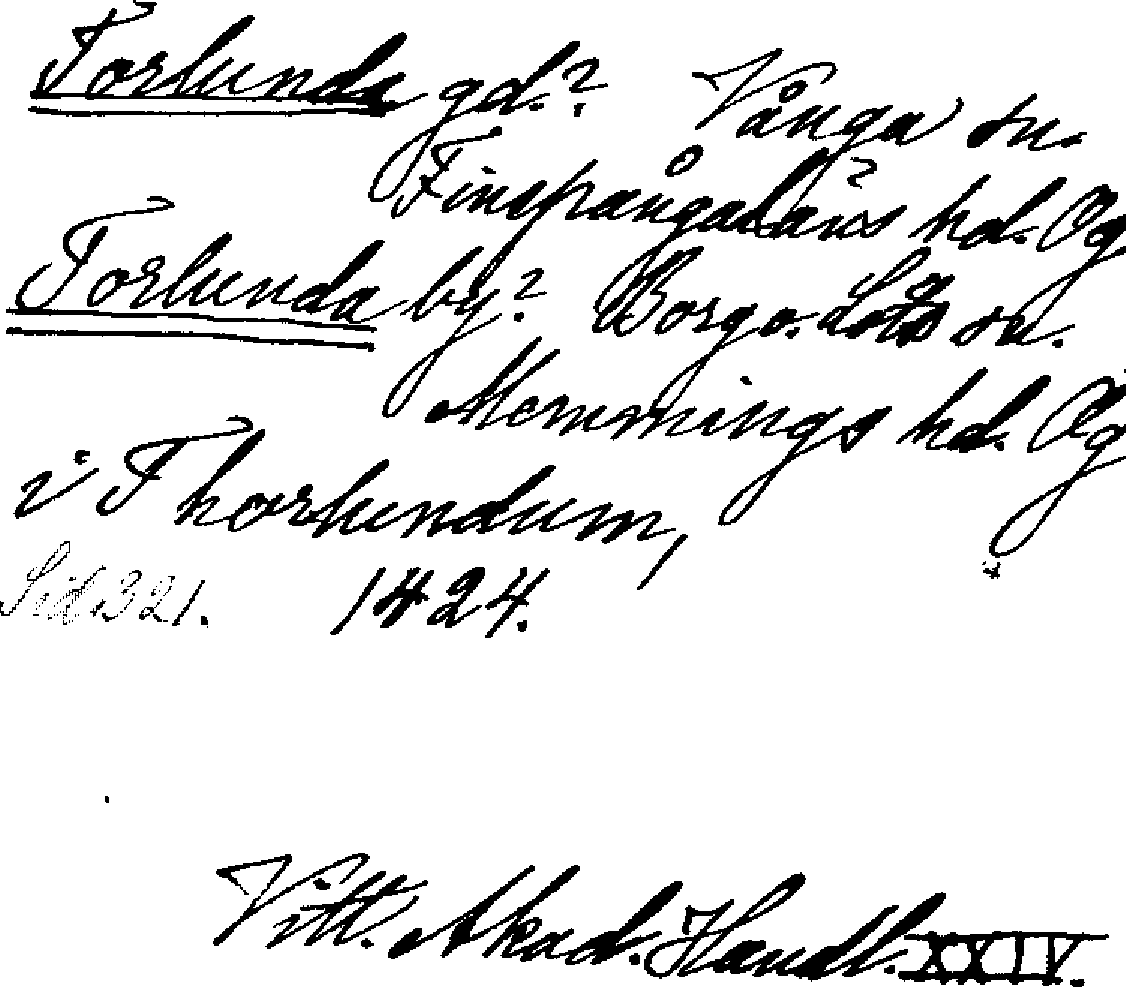 Torlunda gd.? Vånga sn.
Finspångaläns hd. Ög
Torlunda by? Borgs. Löts sn.
Memmings hd. Ög
i Thorlundum,
Sid. 321. 1424.
Vitt. Akad. Handl. XXIV.